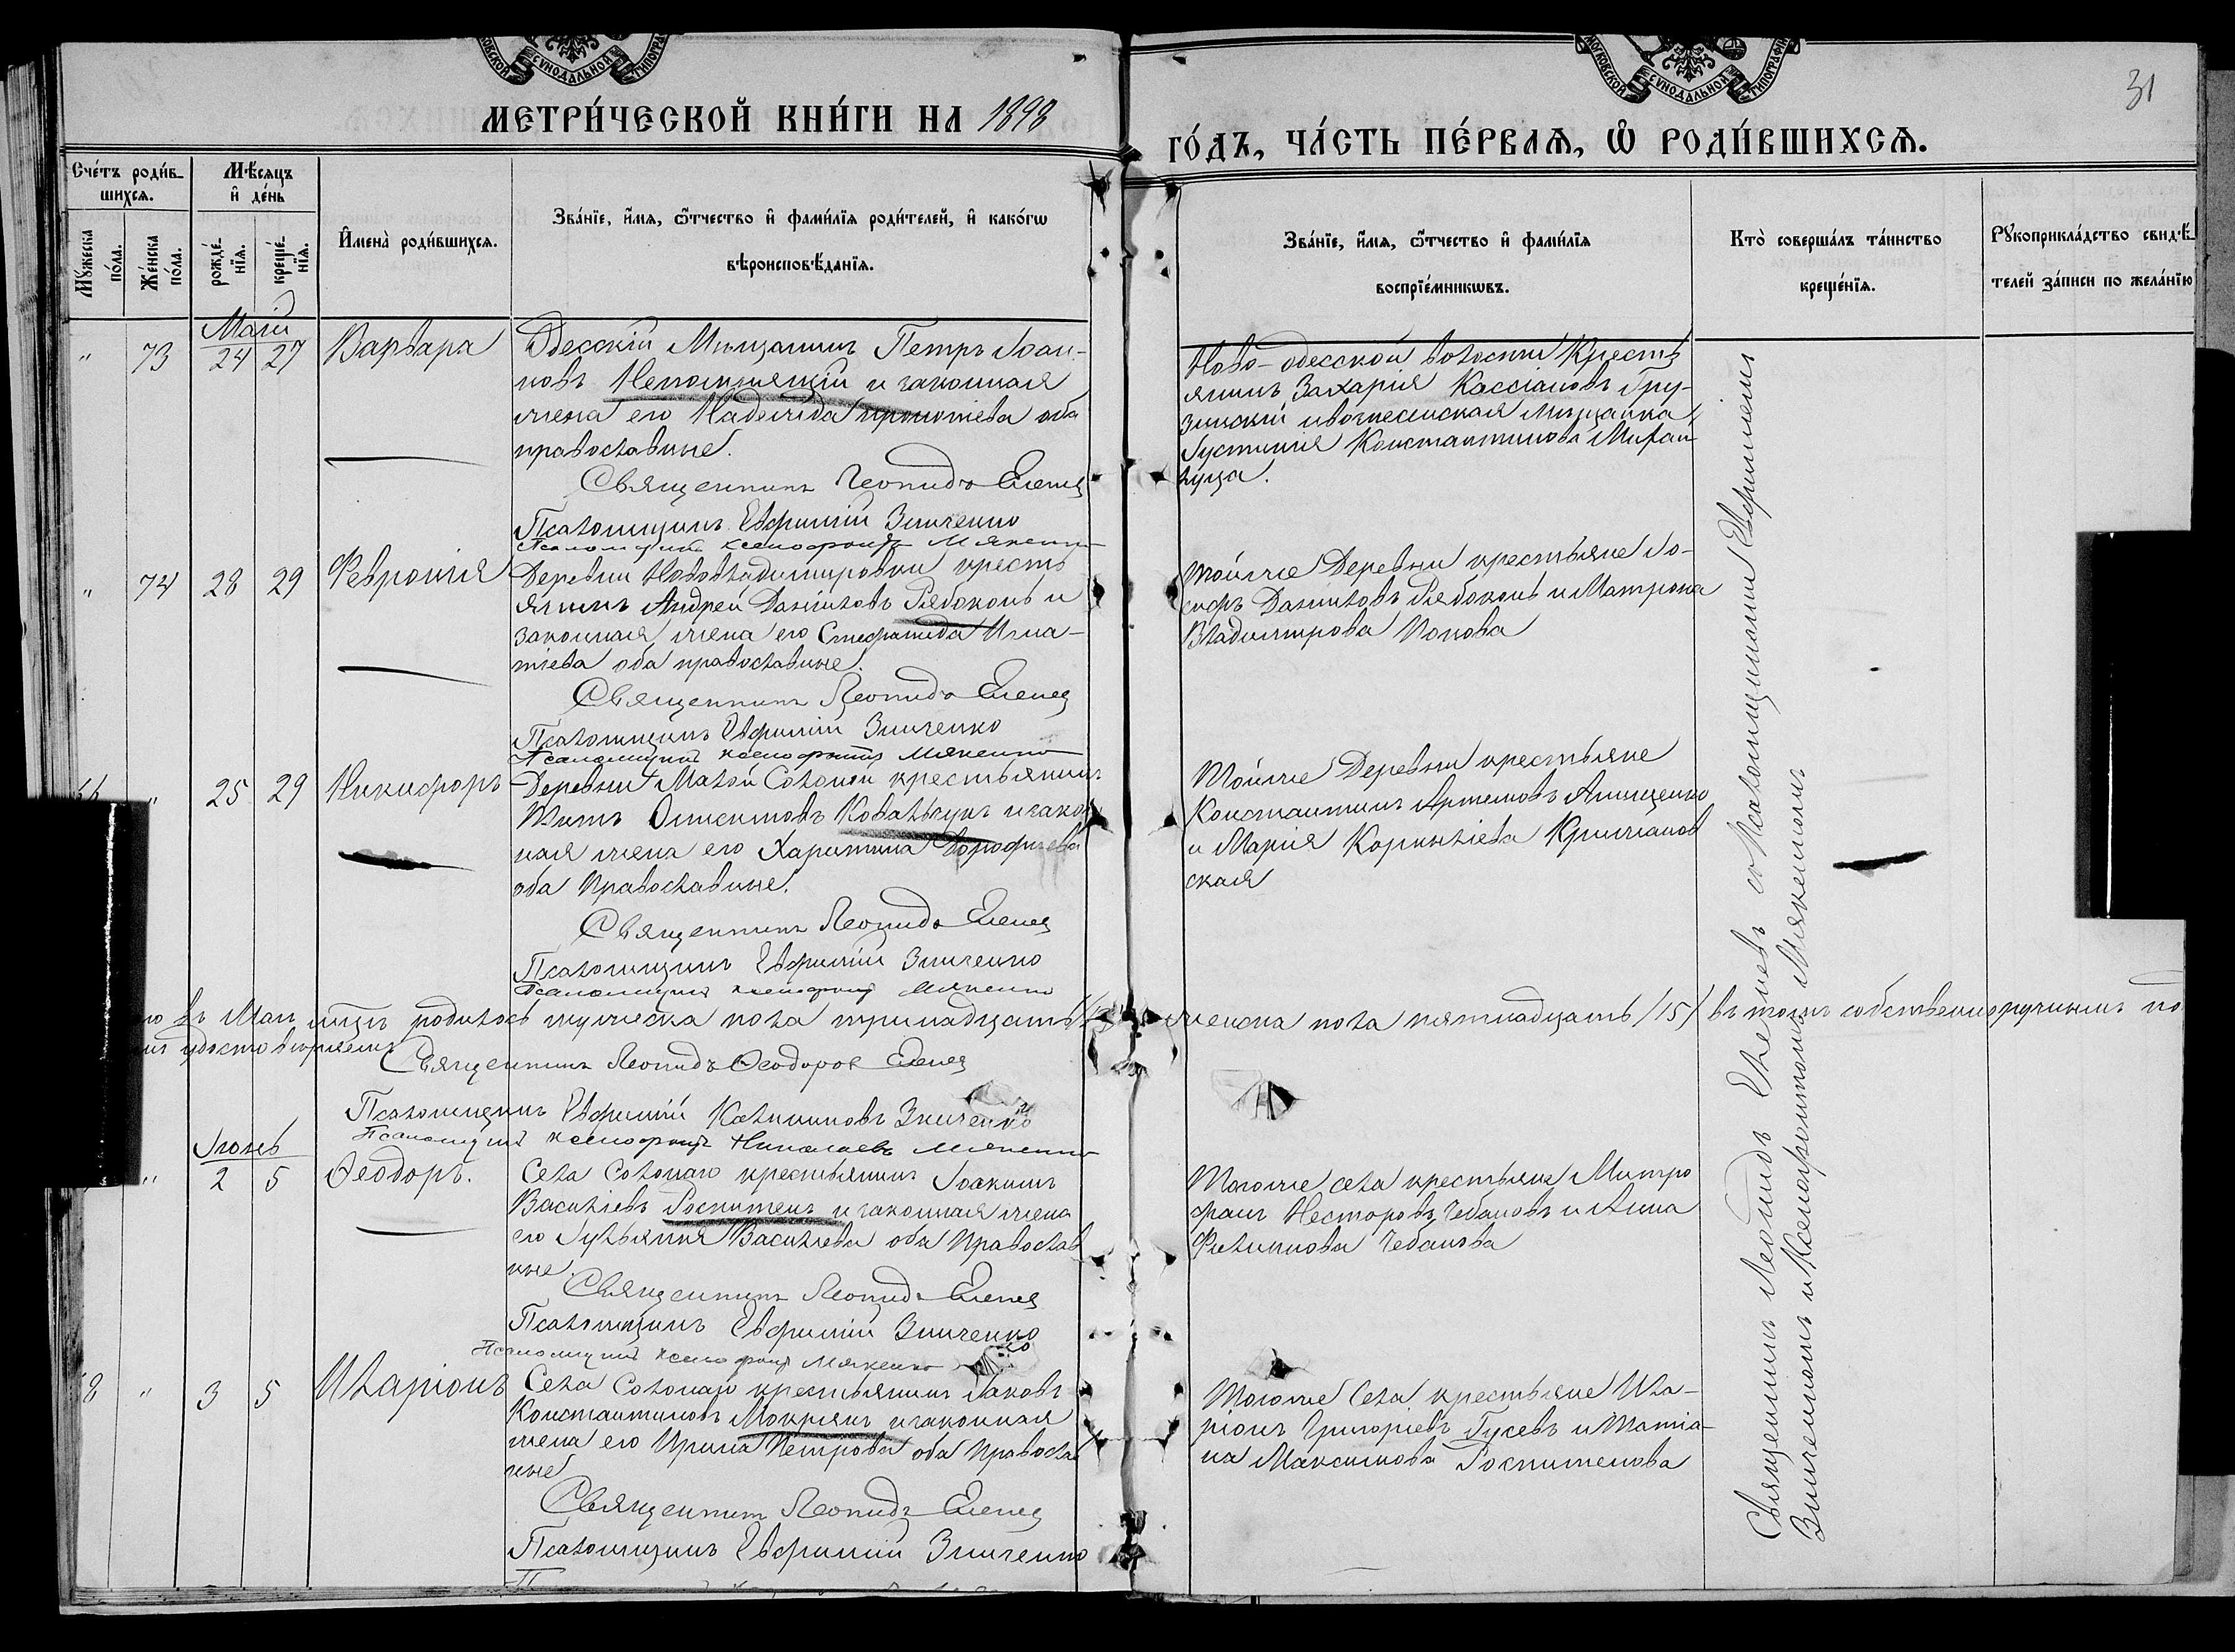 МОСКОВСКОЙ СѴНОДАЛЬНОЙ ТИПОГРАФІИ
МЕТРИ́ЧЕСКОЙ КНИ́ГИ НА 1898
МОСКОВСКОЙ СѴНОДАЛЬНОЙ ТИПОГРАФІИ
31
ГО́ДЪ, ЧА́СТЬ ПЕ́РВАѦ, Ѡ҆ РОДИ́ВШИХСѦ.
Сче́тъ роди́в-
шихсѧ.
Мѣ́сяцъ
и҆ де́нь
Мꙋжеска
по́ла.
Же́нска
по́ла.
рожде́-
нїѧ.
креще́-
нїѧ.
И҆мена̀ роди́вшихсѧ.
Зва́нїе, и҆́мѧ, ѻ҆́тчество и҆ фами́лїѧ роди́телей, и҆ како́гѡ
вѣроисповѣ́данїѧ.
Зва́нїе, и҆́мѧ, ѻ҆́тчество и҆ фами́лїѧ
воспрїе́мникѡвъ.
Кто̀ соверша́лъ та́инство
креще́нїѧ.
Рꙋкоприкла́дство свидѣ́-
телей за́писи по жела́нїю
Маій
" 73 24 27 Варвара
Одесскій Мѣщанинъ Петръ Іоан-
новъ Непомнящій и законная
жена его Надежда Прокопіева оба
православные.
Священникъ Леонидъ Еленев
Псаломщикъ Евфимій Зинченко
Псаломщикъ Ксенофонтъ Мякенко
Ново-одесской волости Кресть
янинъ Захарія Кассіановъ Гру-
зинскій и вознесенская мѣщанка
Іустинія Константинова Михай
луца.
" 74 28 29 Феуронія
Деревни Нововладимировки кресть
янинъ Андрей Даніиловъ Рябоконь и
законная жена его Стефанида Игна-
тіева оба православные.
Священникъ Леонидъ Еленев
Псаломщикъ Евфимій Зинченко
Псаломщикъ Ксенофонтъ Мякенко
Тойже Деревни крестьяне Іо-
сифъ Даніиловъ Рябоконь и Матрона
Владимірова Попова
66 " 25 29 Никифоръ
Деревни Малой Солоной крестьянинъ
Титъ Онисимовъ Ковальчукъ и закон
ная жена его Харитина Дорофѣева
оба Православные.
Священникъ Леонидъ Еленев
Псаломщикъ Евфимій Зинченко
Псаломщикъ Ксенофонтъ Мякенко
Тойже Деревни крестьяне
Константинъ Артемовъ Анищенко
и Марія Корнилієва Крижанов
ская
въ Маѣ мѣсяцѣ родилось мужеска пола тринадцать женска пола пятнадцать /15/ въ томъ собственноручнымъ по
удостовѣряемъ
Священникъ Леонидъ Ѳеодоров Еленев
Псаломщикъ Евфимій Калиниковъ Зинченко
Псаломщикъ Ксенофонтъ Николаевъ Мякенко
Іюнь
" 2 5 Ѳеодоръ.
Села Солонаго крестьянинъ Іоакимъ
Василіевъ Роспитенъ и законная жена
его Іуліянія Василіева оба Православ
ные.
Священникъ Леонидъ Еленев
Псаломщикъ Евфимій Зинченко
Псаломщикъ Ксенофонтъ Мякенко
Тогоже села крестьяне Митро
фанъ Несторовъ Чебановъ и Анна
Филиппова Чебанова
68 " 3 5 Иларіонъ
Села Солонаго крестьянинъ Іаковъ
Константиновъ Мокрякъ и законная
жена его Ирина Петрова оба Православ
ные
Священникъ Леонидъ Еленев
Псаломщикъ Евфимій Зинченко
Тогоже Села крестьяне Ила-
ріонъ Григоріевъ Гусевъ и Татіа-
на Максимова Роспитенова
Священникъ Леонидъ Еленевъ со Псаломщиками Евфиміемъ
Зинченкомъ и Ксенофонтомъ Мякенкомъ